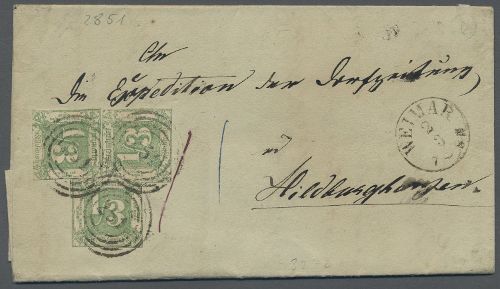 2851
An
Die Expedition der Dorfzeitung
in
Hildburghausen.
WEIMAR
1/3
1/3
1/3